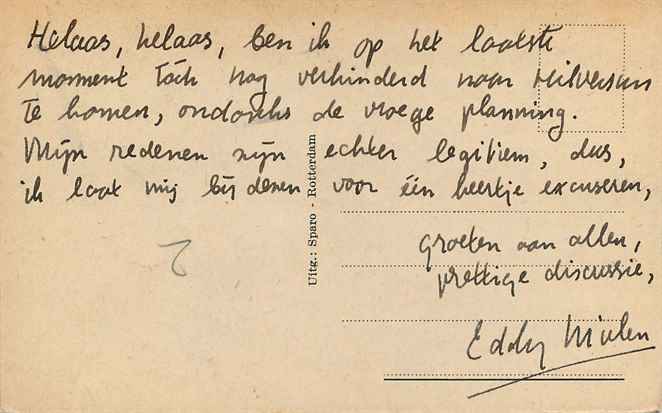 Helaas, helaas, ben ik op het laatste
moment tóch nog verhinderd naar Hilversum
te komen, ondanks de vroege planning.
Mijn redenen zijn echter legitiem, dus,
ik laat mij bij dezen voor één keertje excuseren,
groeten aan allen,
prettige discussie,
Eddy
Uitg.: Sparo - Rotterdam